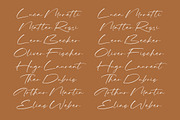 Luca Moretti
Matteo Rossi
Leon Becker
Oliver Fischer
Hugo Laurent
Theo Dubois
Arthur Martin
Elias Weber
Luca Moretti
Matteo Rossi
Leon Becker
Oliver Fischer
Hugo Laurent
Theo Dubois
Arthur Martin
Elias Weber